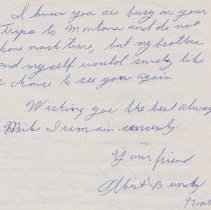 I know you are busy on your
trips to Montana and do not
have much time, but my brothers
and myself would surely like
a chance to see you again
Wishing you the best always
Mike I remain sincerely
Your friend
Albert